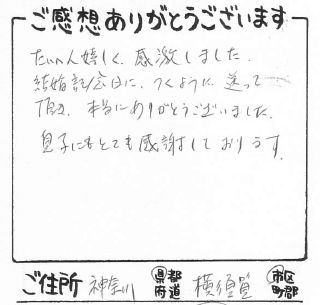 ご感想ありがとうございます
たいへん嬉しく、感激しました。
結婚記念日に、つくように送って
頂き、本当にありがとうございました。
息子にもとても感謝しております。
ご住所 神奈川 都道府県 横須賀 市区町郡